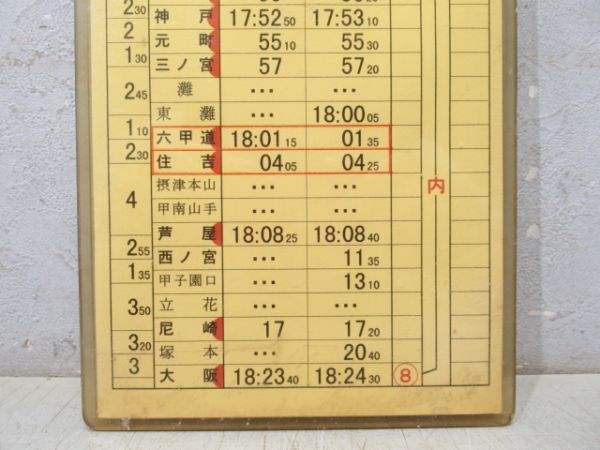 2 30
神戸 17:52 50 17:53 10
2
元町 55 10 55 30
1 30
三ノ宮 57 57 20
2 45
灘 … …
東灘 … 18:00 05
1 10
六甲道 18:01 15 01 35
2 30
住吉 04 05 04 25
4
摂津本山 … …
甲南山手 … …
内
芦屋 18:08 25 18:08 40
2 55
西ノ宮 … 11 35
1 35
甲子園口 … 13 10
3 50
立花 … …
尼崎 17 17 20
3 20
塚本 … 20 40
3
大阪 18:23 40 18:24 30 ⑧